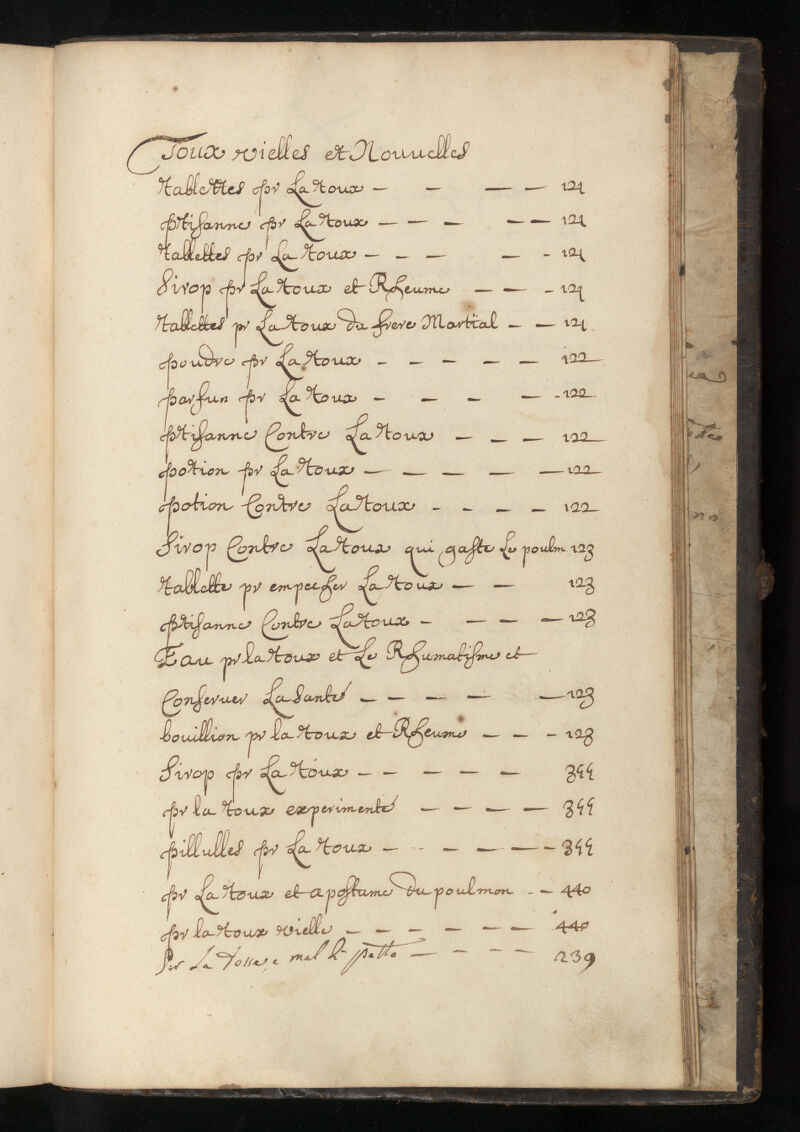 Toux vielles et Nouvelles
tablettes pr La toux — — — — 121
ptisanne pr La toux — — — — — 121
tablettes pr La toux — — — — - 121
Sirop pr La toux et Rheume — — - 121
tablettes pr La toux du frere Martial — — 121
poudre pr La toux - — — — — 122
parfun pr La toux - — - — - 122
ptisanne Contre La toux — — — 122
potion pr La toux — — — — — 122
potion Contre La toux - - — — 122
Sirop Contre La toux qui gaste Le poulm 123
tablette pr empecher La toux — — 123
ptisanne Contre La toux - — — — 123
Eau pr la toux et Le Rhumatisme et
Conserver La Santé — — — — — 123
bouillion pr la toux et Rheume — — - 123
Sirop pr La toux — — — — —
pr la toux experimenté — — — —
pillulles pr La toux — - — — — -
pr La toux et apostame du poulmon - - 440
pr la toux vielle — — — — — — 440
Per La tosse, e mal di petto — — - - — 239